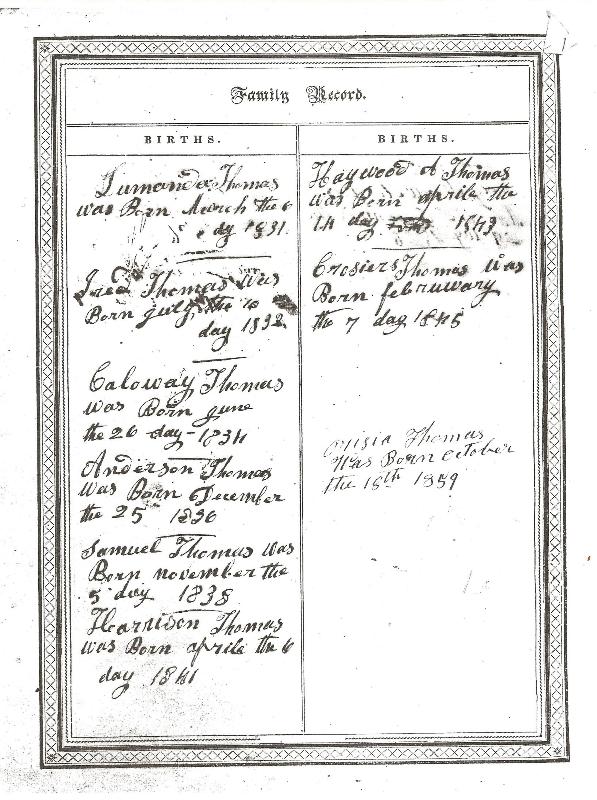 Family Record.
BIRTHS.
Lumanda Thomas
was Born March the 6
dy 1831
Thomas Was
Born july the
day 1832
Caloway Thomas
was Born june
the 26 day - 1834
Anderson Thomas
Was Born December
the 25 1836
Samuel Thomas Was
Born november the
5 day 1838
Harrison Thomas
was Born aprile the 6
day 1841
BIRTHS.
Haywood A Thomas
was Born aprile the
14 day 1843
Crosiers Thomas Was
Born februwary
the 7 day 1845
Thomas
Was Born October
the 1859